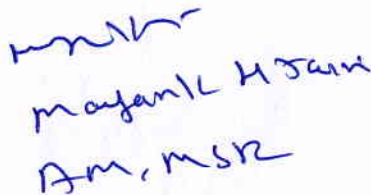 Mayank H Jain
AM, MSR